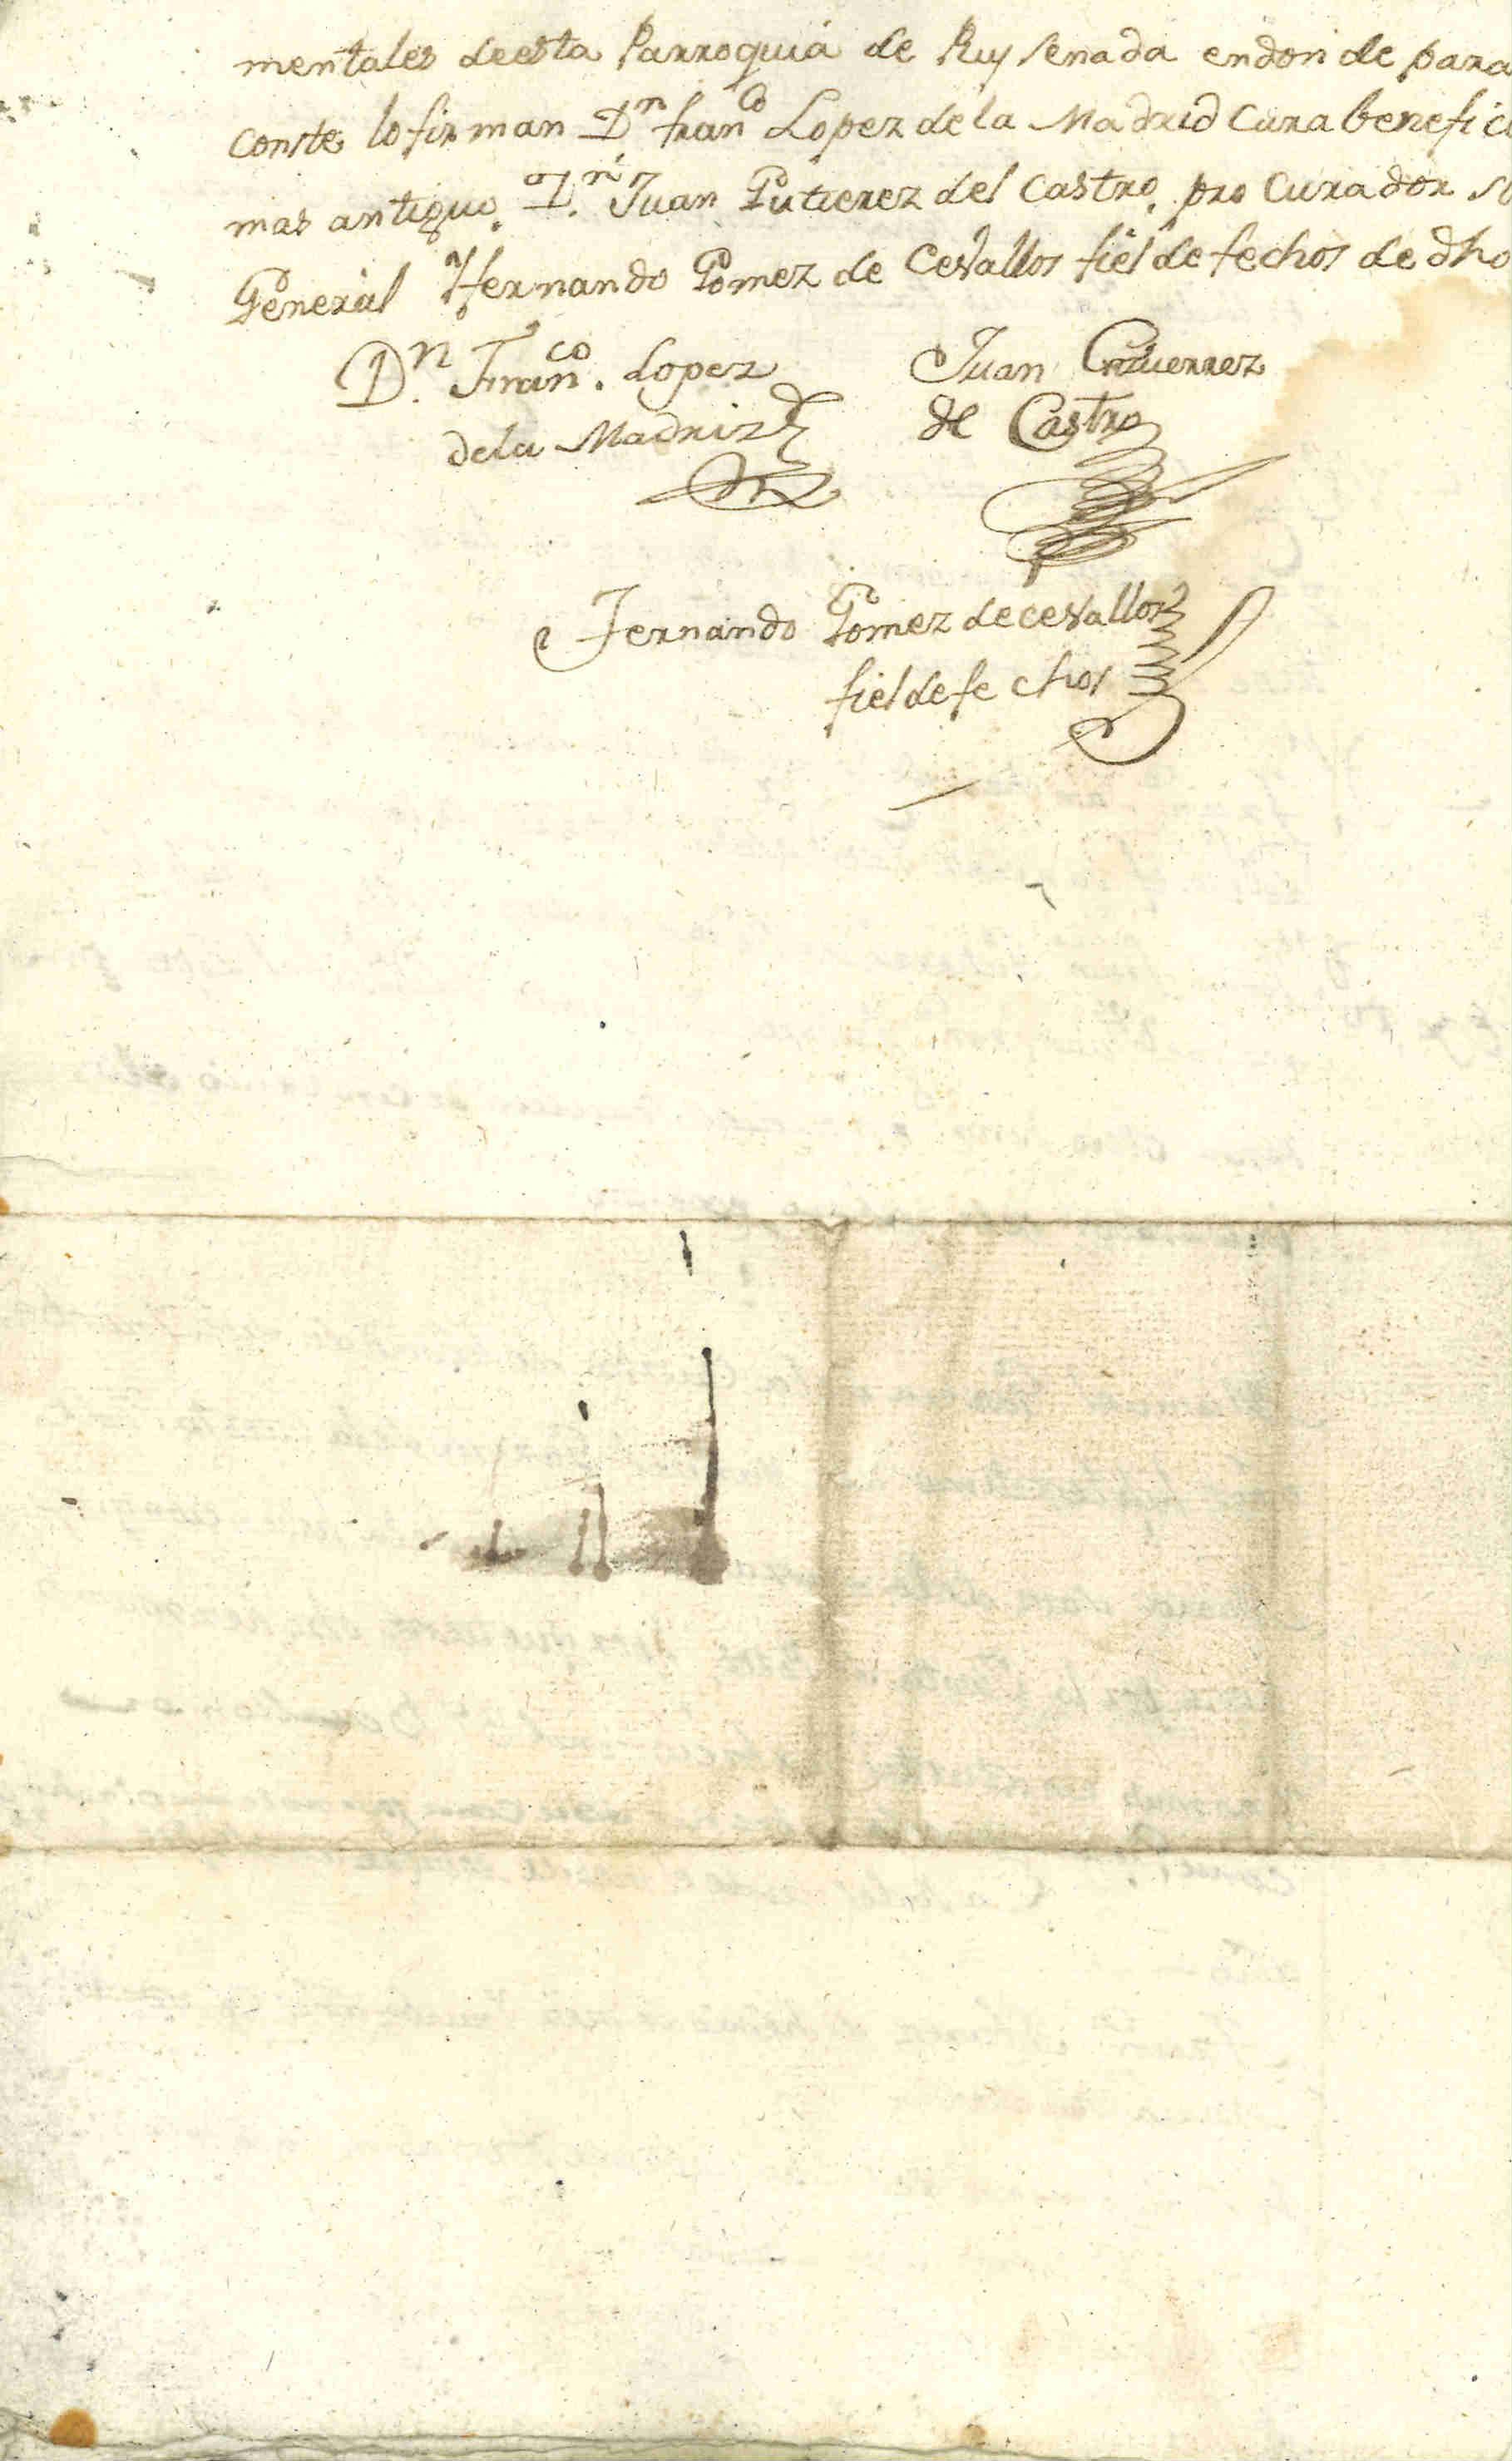 mentales deesta Parroquia de Ruysenada endonde para
conste lo firman Dn. franco Lopez de la Madrid Cura benefici
mas antiguo. Dn. Juan Gutierez del Castro. procurador
General Hernando Gomez de Cevallos fiel de fechos de dho
Dn. Franco. Lopez
dela Madriz
Juan Gutierrez
de Castro
Fernando Gomez de cevallos
fiel de fechos